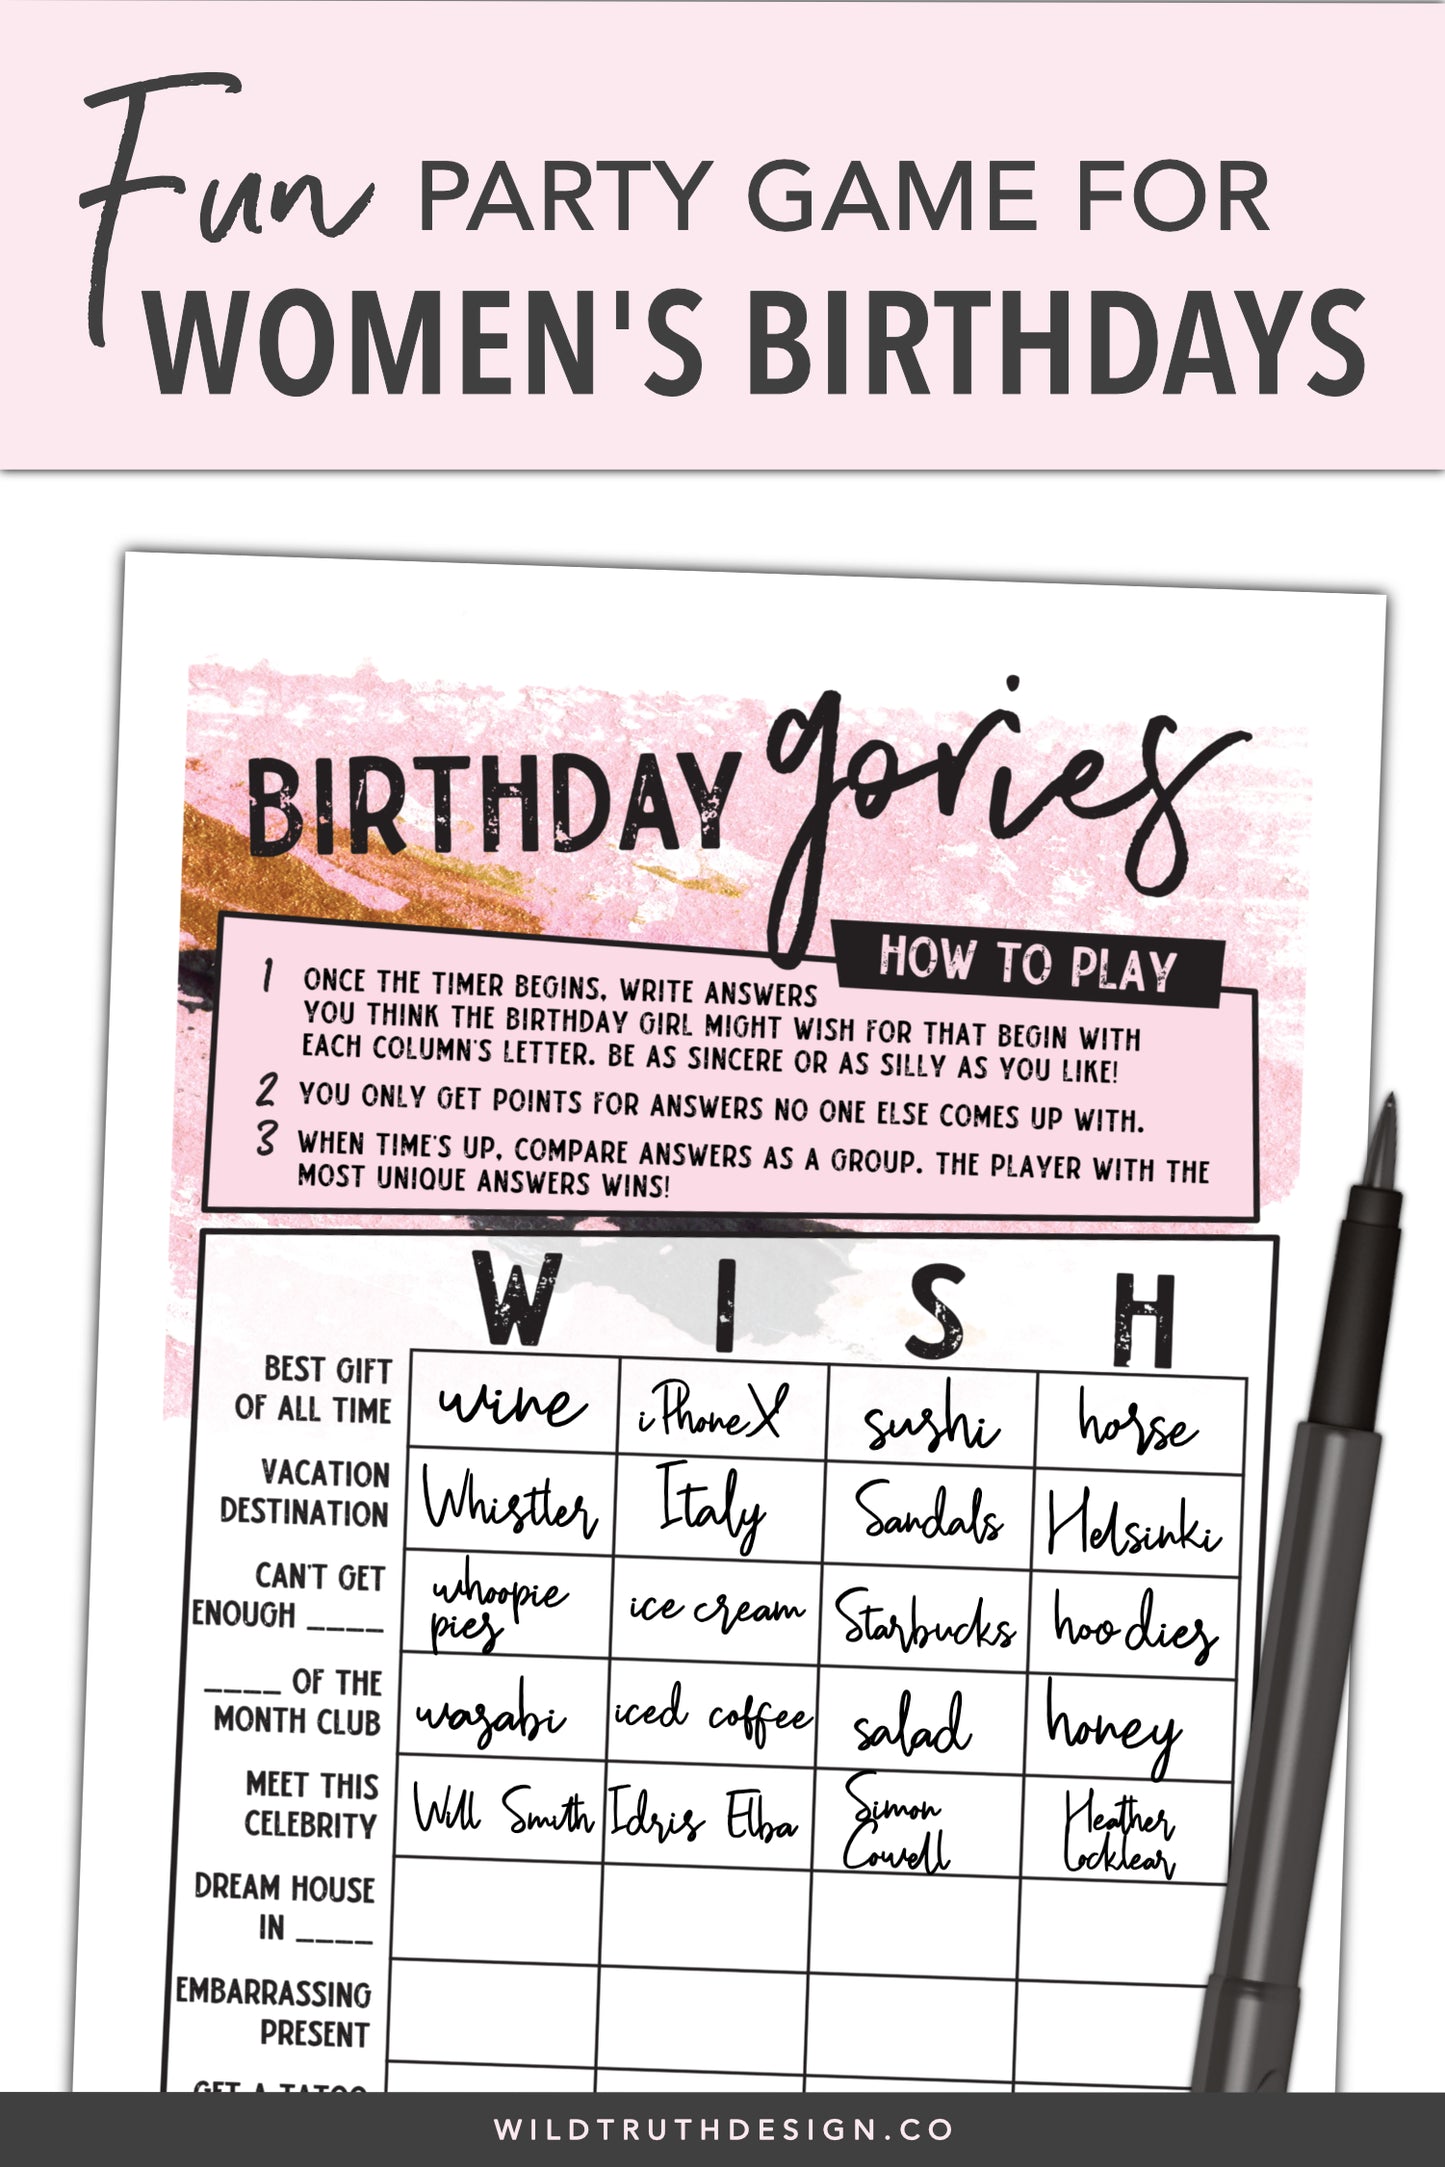 Fun PARTY GAME FOR
WOMEN'S BIRTHDAYS
BIRTHDAY gories
HOW TO PLAY
1 ONCE THE TIMER BEGINS, WRITE ANSWERS
YOU THINK THE BIRTHDAY GIRL MIGHT WISH FOR THAT BEGIN WITH
EACH COLUMN'S LETTER. BE AS SINCERE OR AS SILLY AS YOU LIKE!
2 YOU ONLY GET POINTS FOR ANSWERS NO ONE ELSE COMES UP WITH.
3 WHEN TIME'S UP, COMPARE ANSWERS AS A GROUP. THE PLAYER WITH THE
MOST UNIQUE ANSWERS WINS!
W I S H
BEST GIFT
OF ALL TIME
wine iPhone X sushi horse
VACATION
DESTINATION
Whistler Italy Sandals Helsinki
CAN'T GET
ENOUGH ____
whoopie
pies
ice cream Starbucks hoodies
____ OF THE
MONTH CLUB
wasabi iced coffee salad honey
MEET THIS
CELEBRITY
Will Smith Idris Elba
Simon
Cowell
Heather
Locklear
DREAM HOUSE
IN ____
EMBARRASSING
PRESENT
GET A TATOO
WILDTRUTHDESIGN.CO